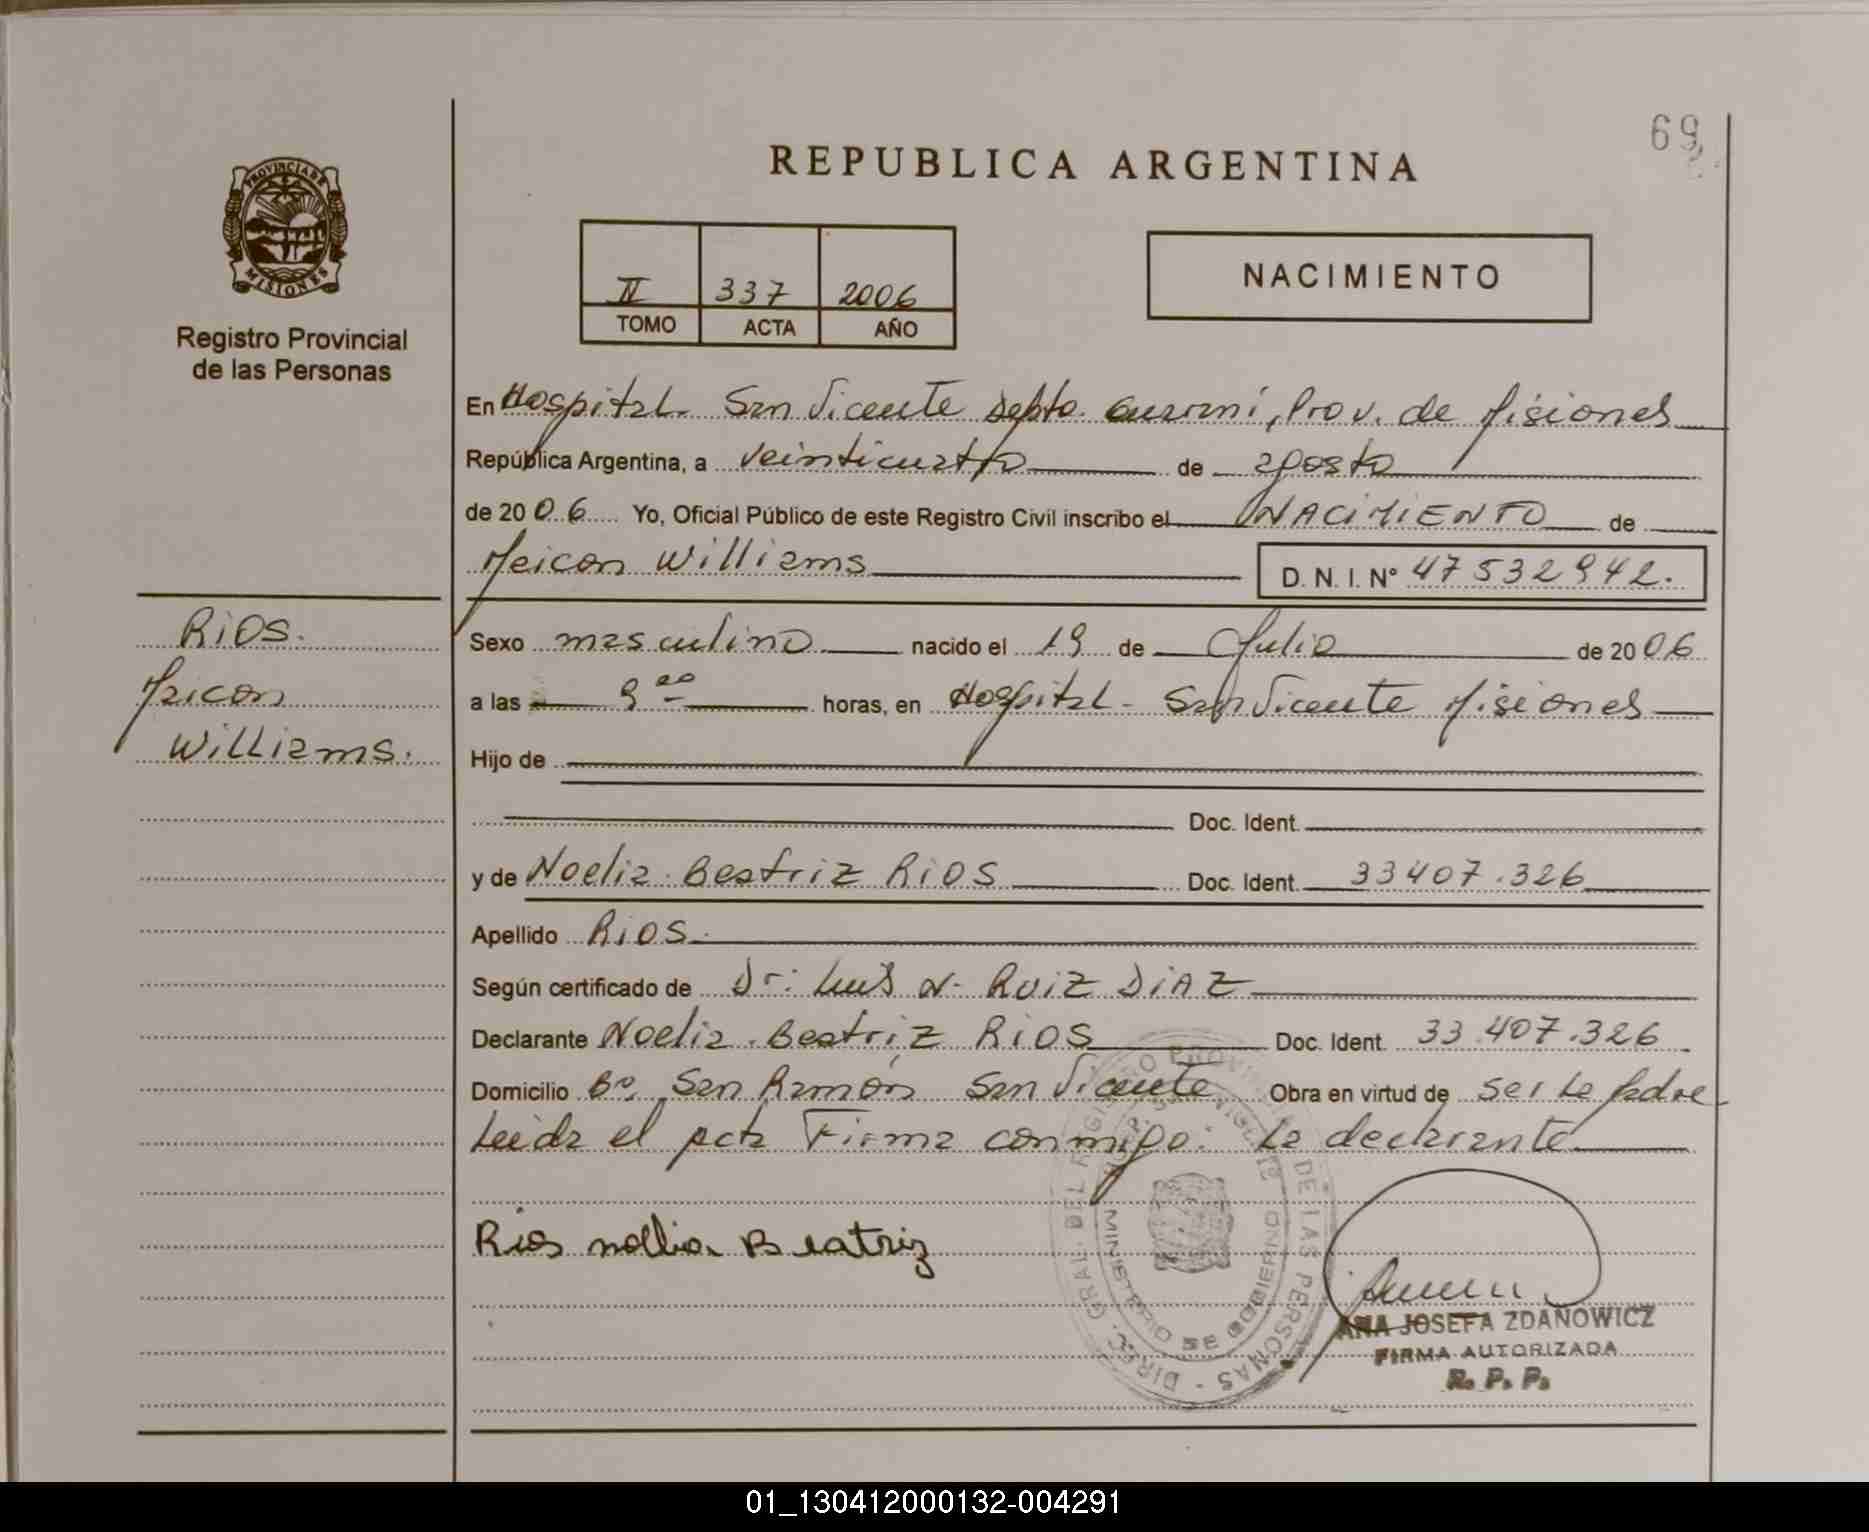 69
REPUBLICA ARGENTINA
PROVINCIA DE
MISIONES
Registro Provincial
de las Personas
II 337 2006
TOMO ACTA AÑO
NACIMIENTO
En Hospital San Vicente Depto. Guaraní, Prov. de Misiones
República Argentina, a veinticuatro de agosto
de 2006 Yo, Oficial Público de este Registro Civil inscribo el NACIMIENTO de
Meicon Williams D. N. I. N° 47532942.
RIOS.
Meicon
Williams.
Sexo masculino nacido el 19 de Julio de 2006
a las 9 00 horas, en Hospital - San Vicente Misiones
Hijo de
Doc. Ident.
y de Noelia Beatriz RIOS Doc. Ident. 33407.326
Apellido RIOS.
Según certificado de Dr: Luis N. RUIZ DIAZ
Declarante Noelia Beatriz RIOS Doc. Ident. 33.407.326
Domicilio B° San Ramón San Vicente Obra en virtud de ser la
Leida el acta Firma conmigo: La declarante
Rios Beatriz
DIREC. GRAL. DEL REGISTRO PROVINCIAL DE LAS PERSONAS
MINISTERIO DE GOBIERNO
ANA JOSEFA ZDANOWICZ
FIRMA AUTORIZADA
R. P. P.
01_130412000132-004291